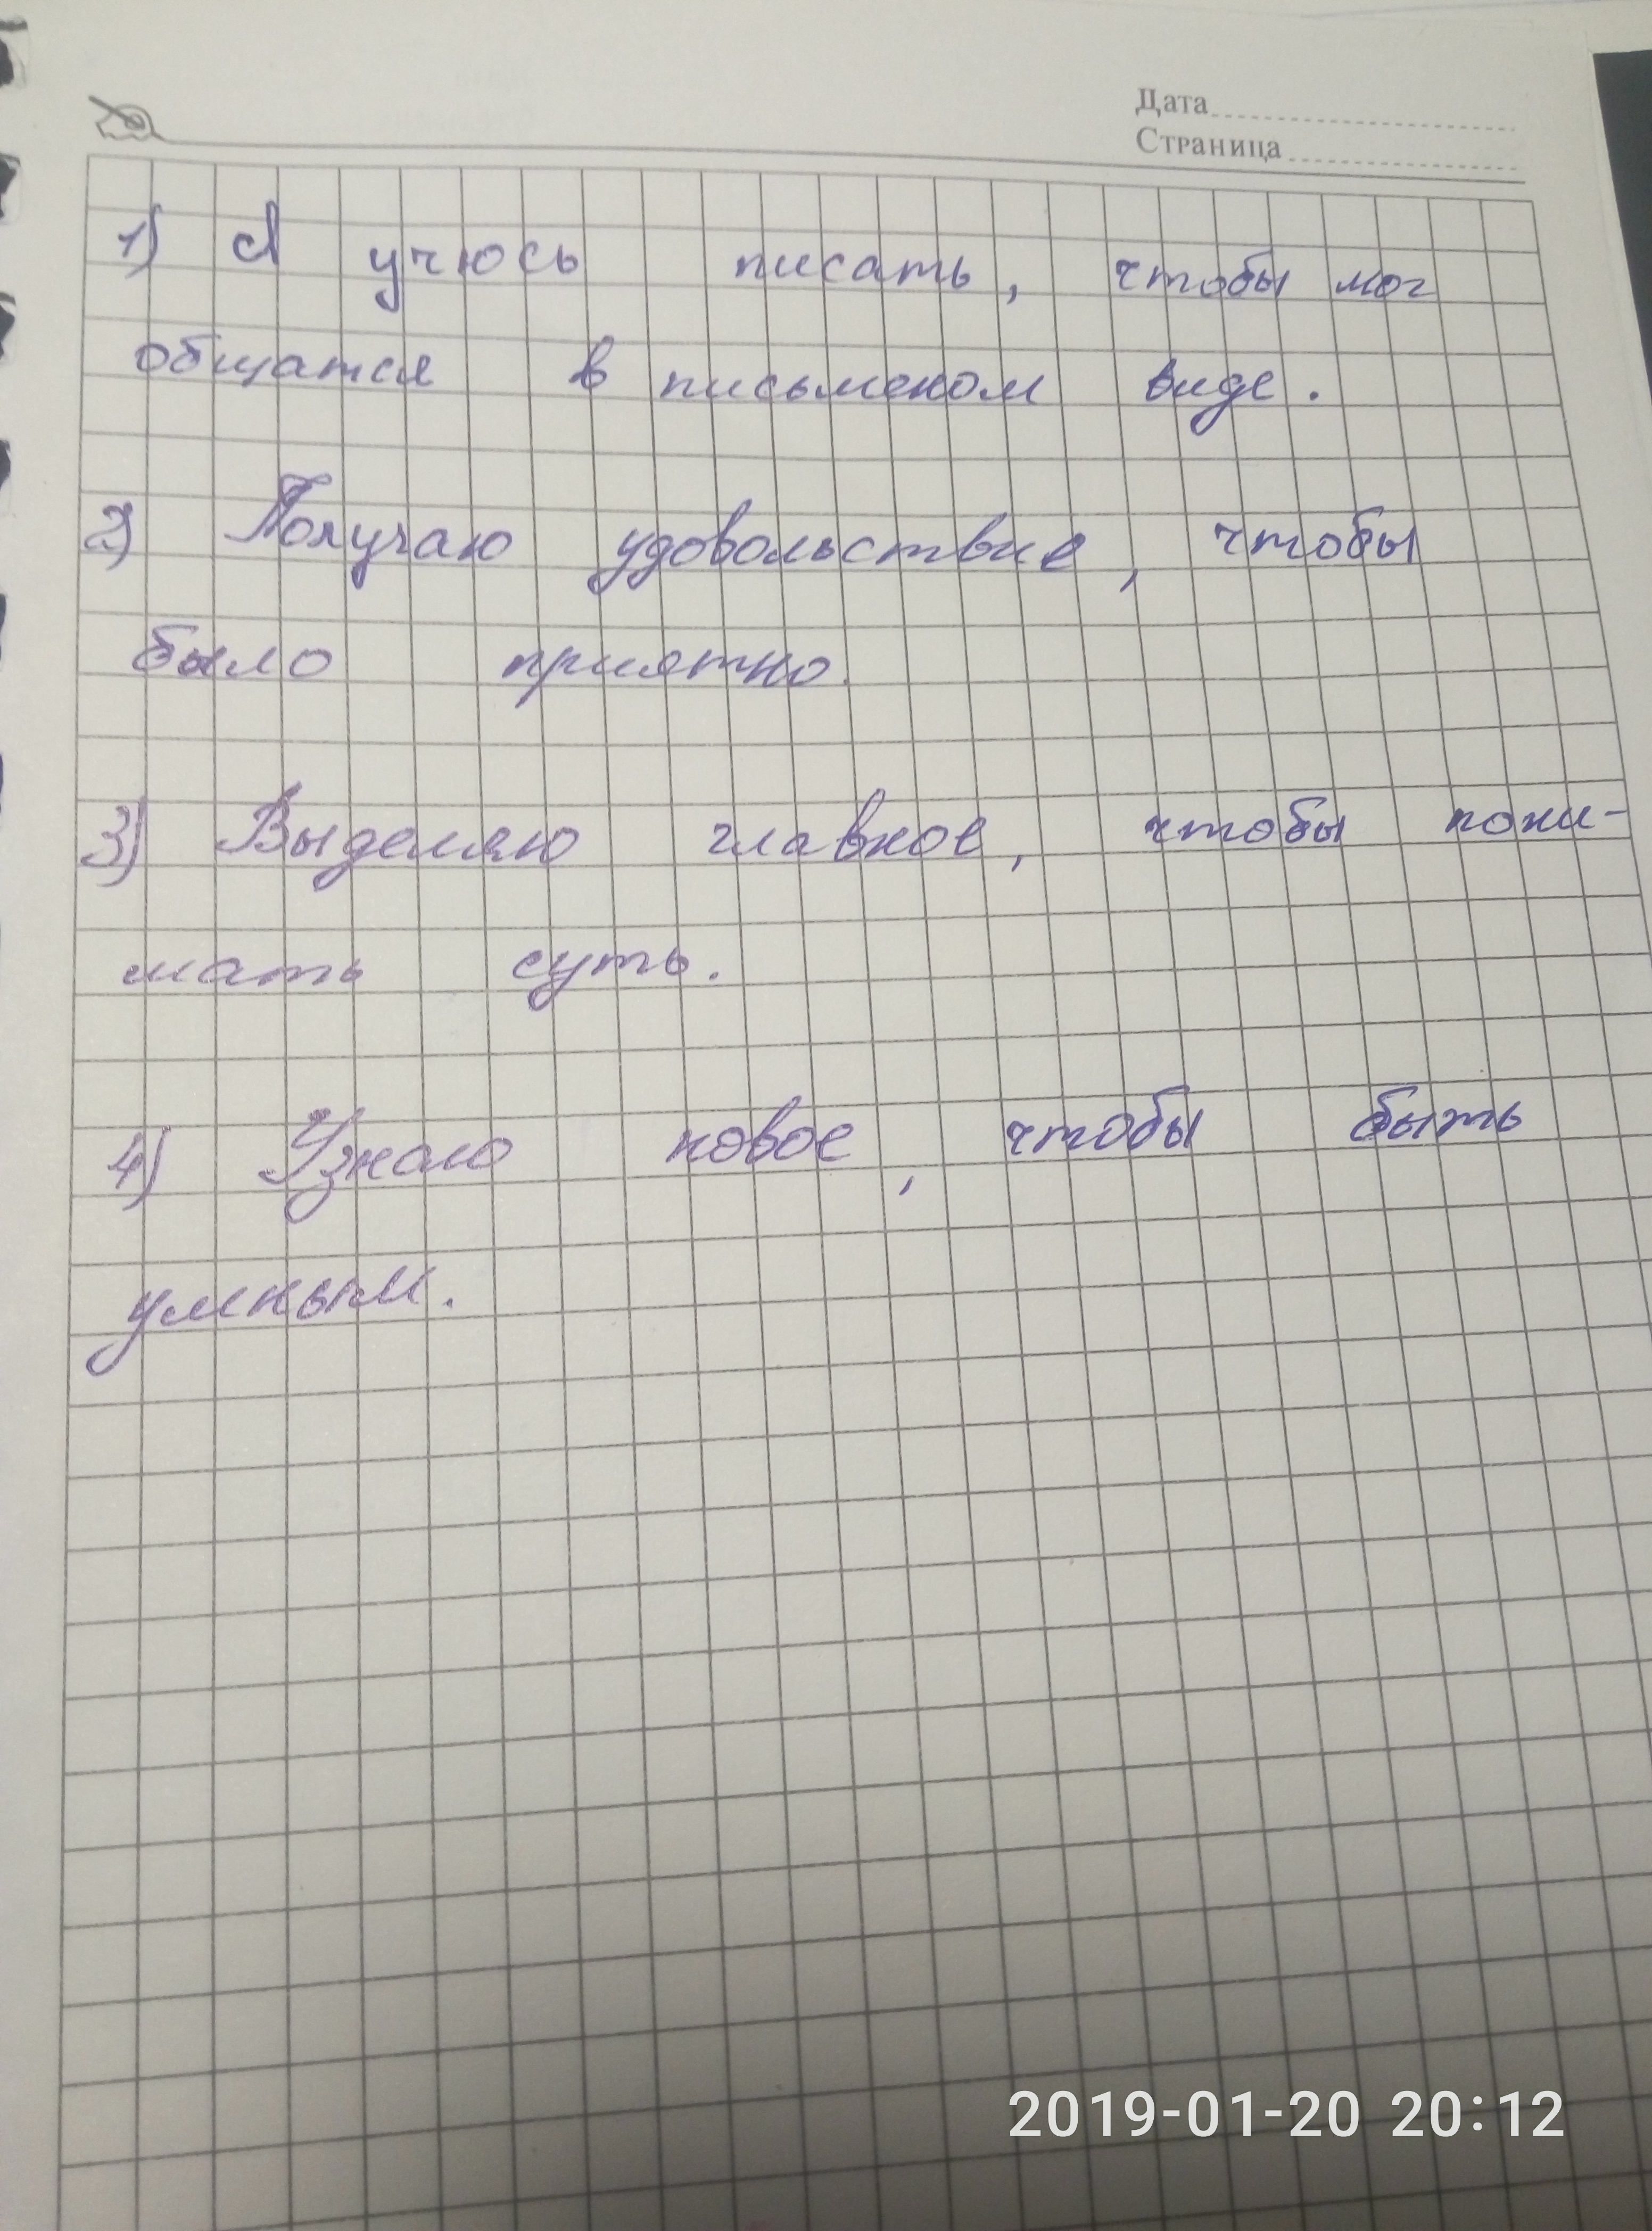 Дата
Страница
1) Я учюсь писать, чтобы мог
общатся в письменом виде.
2) Получаю удовольствие, чтобы
было приятно.
3) Выделяю главное, чтобы пони-
мать суть.
4) Узнаю новое, чтобы быть
умным.
2019-01-20 20:12